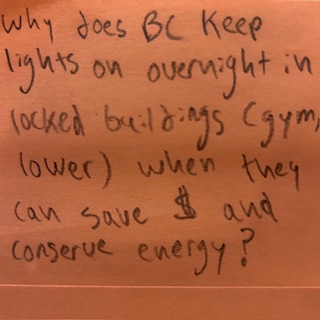 Why does BC keep
lights on overnight in
locked buildings (gym,
lower) when they
can save $ and
conserve energy?